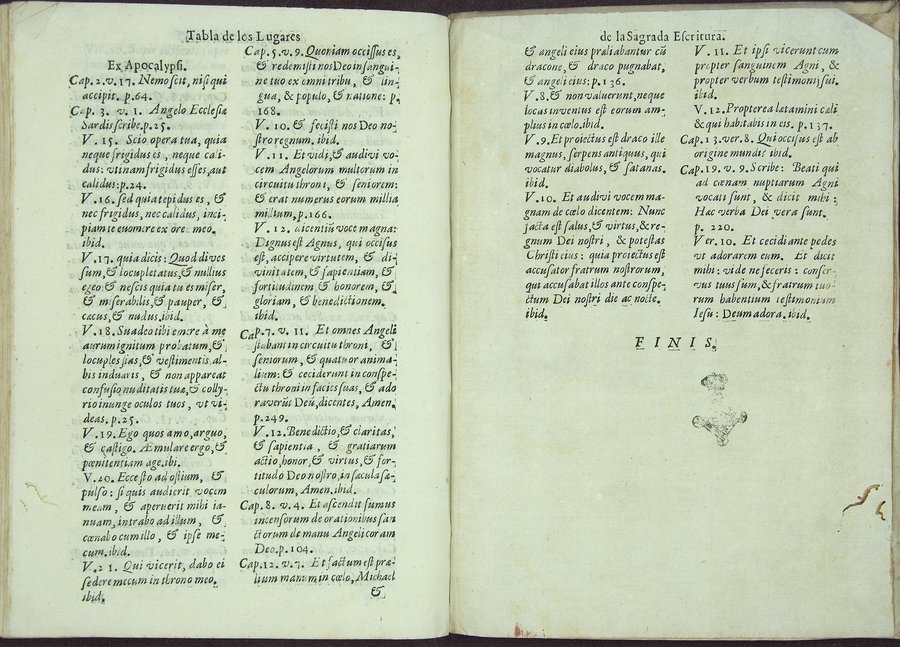 Tabla de los Lugares
Ex Apocalypsi.
Cap. 2. v. 17. Nemo scit, nisi qui
accipit. p. 64.
Cap. 3. v. 1. Angelo Ecclesiæ
Sardis scribe. p. 25.
V. 15. Scio opera tua, quia
neque frigidus es, neque cali-
dus: vtinam frigidus esses, aut
calidus: p. 24.
V. 16. sed quia tepidus es, &
nec frigidus, nec calidus, inci-
piam te euomere ex ore meo.
ibid.
V. 17. quia dicis: Quod diues
sum, & locupletatus, & nullius
egeo: & nescis quia tu es miser,
& miserabilis, & pauper, &
cæcus, & nudus. ibid.
V. 18. Suadeo tibi emere à me
aurum ignitum probatum, &
locuples fias, & vestimentis al-
bis induaris, & non appareat
confusio nuditatis tuæ, & colly-
rio inunge oculos tuos, vt vi-
deas. p. 25.
V. 19. Ego quos amo, arguo,
& castigo. Æmulare ergo, &
pœnitentiam age. ibi.
V. 20. Ecce sto ad ostium, &
pulso: si quis audierit vocem
meam, & aperuerit mihi ia-
nuam, intrabo ad illum, &
cœnabo cum illo, & ipse me-
cum. ibid.
V. 21. Qui vicerit, dabo ei
sedere mecum in throno meo.
ibid.
Cap. 5. v. 9. Quoniam occissus es,
& redemisti nos Deo in sangui-
ne tuo ex omni tribu, & lin-
gua, & populo, & natione: p.
168.
V. 10. & fecisti nos Deo no-
stro regnum. ibid.
V. 11. Et vidi, & audivi vo-
cem Angelorum multorum in
circuitu throni, & seniorem:
& erat numerus eorum millia
millium, p. 166.
V. 12. dicentiũ voce magna:
Dignus est Agnus, qui occisus
est, accipere virtutem, & di-
vinitatem, & sapientiam, &
fortitudinem, & honorem, &
gloriam, & benedictionem.
ibid.
Cap. 7. v. 11. Et omnes Angeli
stabant in circuitu throni, &
seniorum, & quatuor anima-
lium: & ceciderunt in conspe-
ctu throni in facies suas, & ado
raverũt Deũ, dicentes, Amen.
p. 249.
V. 12. Benedictio, & claritas,
& sapientia, & gratiarum
actio, honor, & virtus, & for-
titudo Deo nostro, in sæcula sæ-
culorum, Amen. ibid.
Cap. 8. v. 4. Et ascendit fumus
incensorum de orationibus san
ctorum de manu Angeli coram
Deo. p. 104.
Cap. 12. v. 7. Et factum est præ-
lium manum in cœlo, Michael
&
de la Sagrada Escritura.
& angeli eius præliabantur cũ
dracone, & draco pugnabat,
& angeli eius: p. 136.
V. 8. & non valuerunt, neque
locus inventus est eorum am-
plius in cœlo. ibid.
V. 9. Et proiectus est draco ille
magnus, serpens antiquus, qui
vocatur diabolus, & satanas.
ibid.
V. 10. Et audivi vocem ma-
gnam de cœlo dicentem: Nunc
facta est salus, & virtus, & re-
gnum Dei nostri, & potestas
Christi eius: quia proiectus est
accusator fratrum nostrorum,
qui accusabat illos ante conspe-
ctum Dei nostri die ac nocte.
ibid.
V. 11. Et ipsi vicerunt eum
propter sanguinem Agni, &
propter verbum testimonij sui.
ibid.
V. 12. Propterea lætamini cæli
& qui habitabis in eis. p. 137.
Cap. 13. ver. 8. Qui occisus est ab
origine mundi: ibid.
Cap. 19. v. 9. Scribe: Beati qui
ad cœnam nuptiarum Agni
vocati sunt, & dicit mihi:
Hæc verba Dei vera sunt.
p. 220.
Ver. 10. Et cecidi ante pedes
vt adorarem eum. Et dicit
mihi: vide ne feceris: conser-
vus tuus sum, & fratrum tuo-
rum habentium testimonium
Iesu: Deum adora. ibid.
F I N I S.